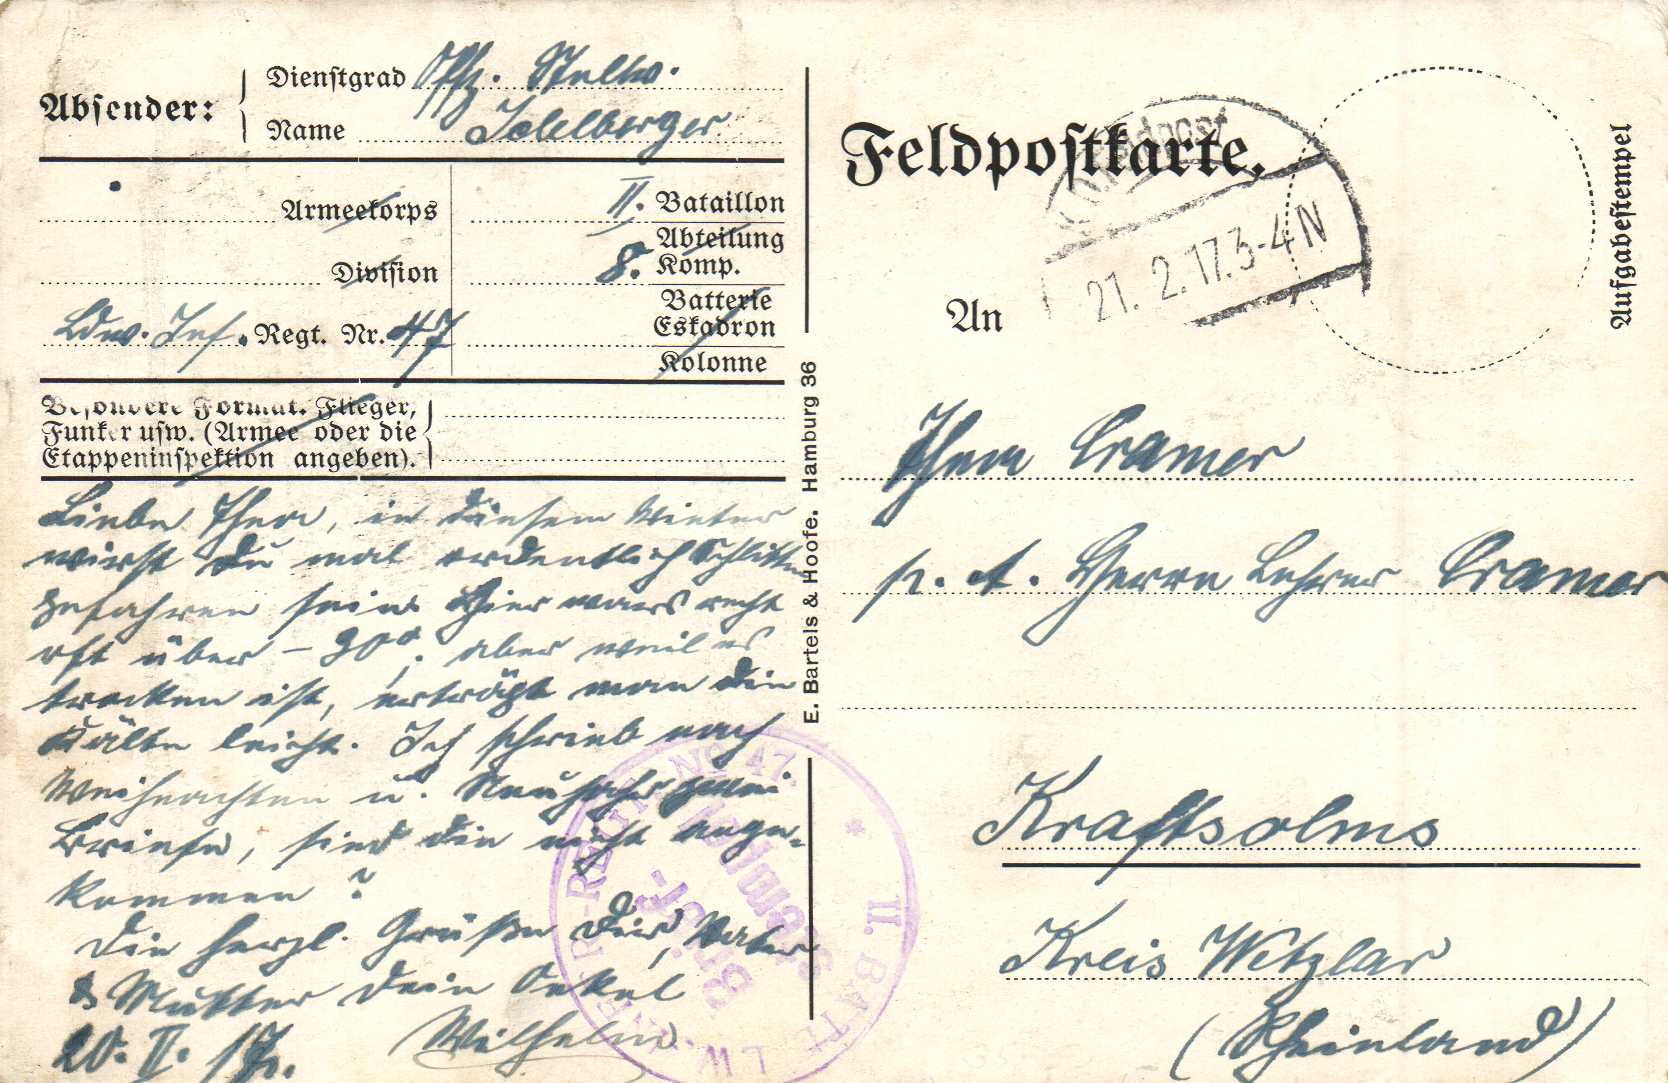 Absender:
Dienstgrad Offz. Stellv.
Name
Armeekorps
Division
Ldw. Inf. Regt. Nr. 47
II. Bataillon
Abteilung
8. Komp.
Batterie
Eskadron
Kolonne
Besondere Format. Flieger,
Funker usw. (Armee oder die
Etappeninspektion angeben).
Liebe Thea, in diesem Winter
wirst Du mal ordentlich Schlitten
gefahren sein. Hier wars recht
oft über – 30°, aber weil es
trocken ist, erträgt man die
Kälte leicht. Ich schrieb nach
Weihnachten u. Neujahr zwei
Briefe, sind die nicht ange-
kommen?
Die herzl. Grüße Dir, Vater
& Mutter Dein Onkel
20. II. 17. Wilhelm
E. Bartels & Hoofe. Hamburg 36
Feldpostkarte.
Feldpost
21. 2. 17. 3-4 N
Aufgabestempel
An
Thea Cramer
p. A. Herrn Lehrer Cramer
Kraftsolms
Kreis Wetzlar
(Rheinland)
REGT. No 47. * II. BATL. L.W.
Brief-
stempel